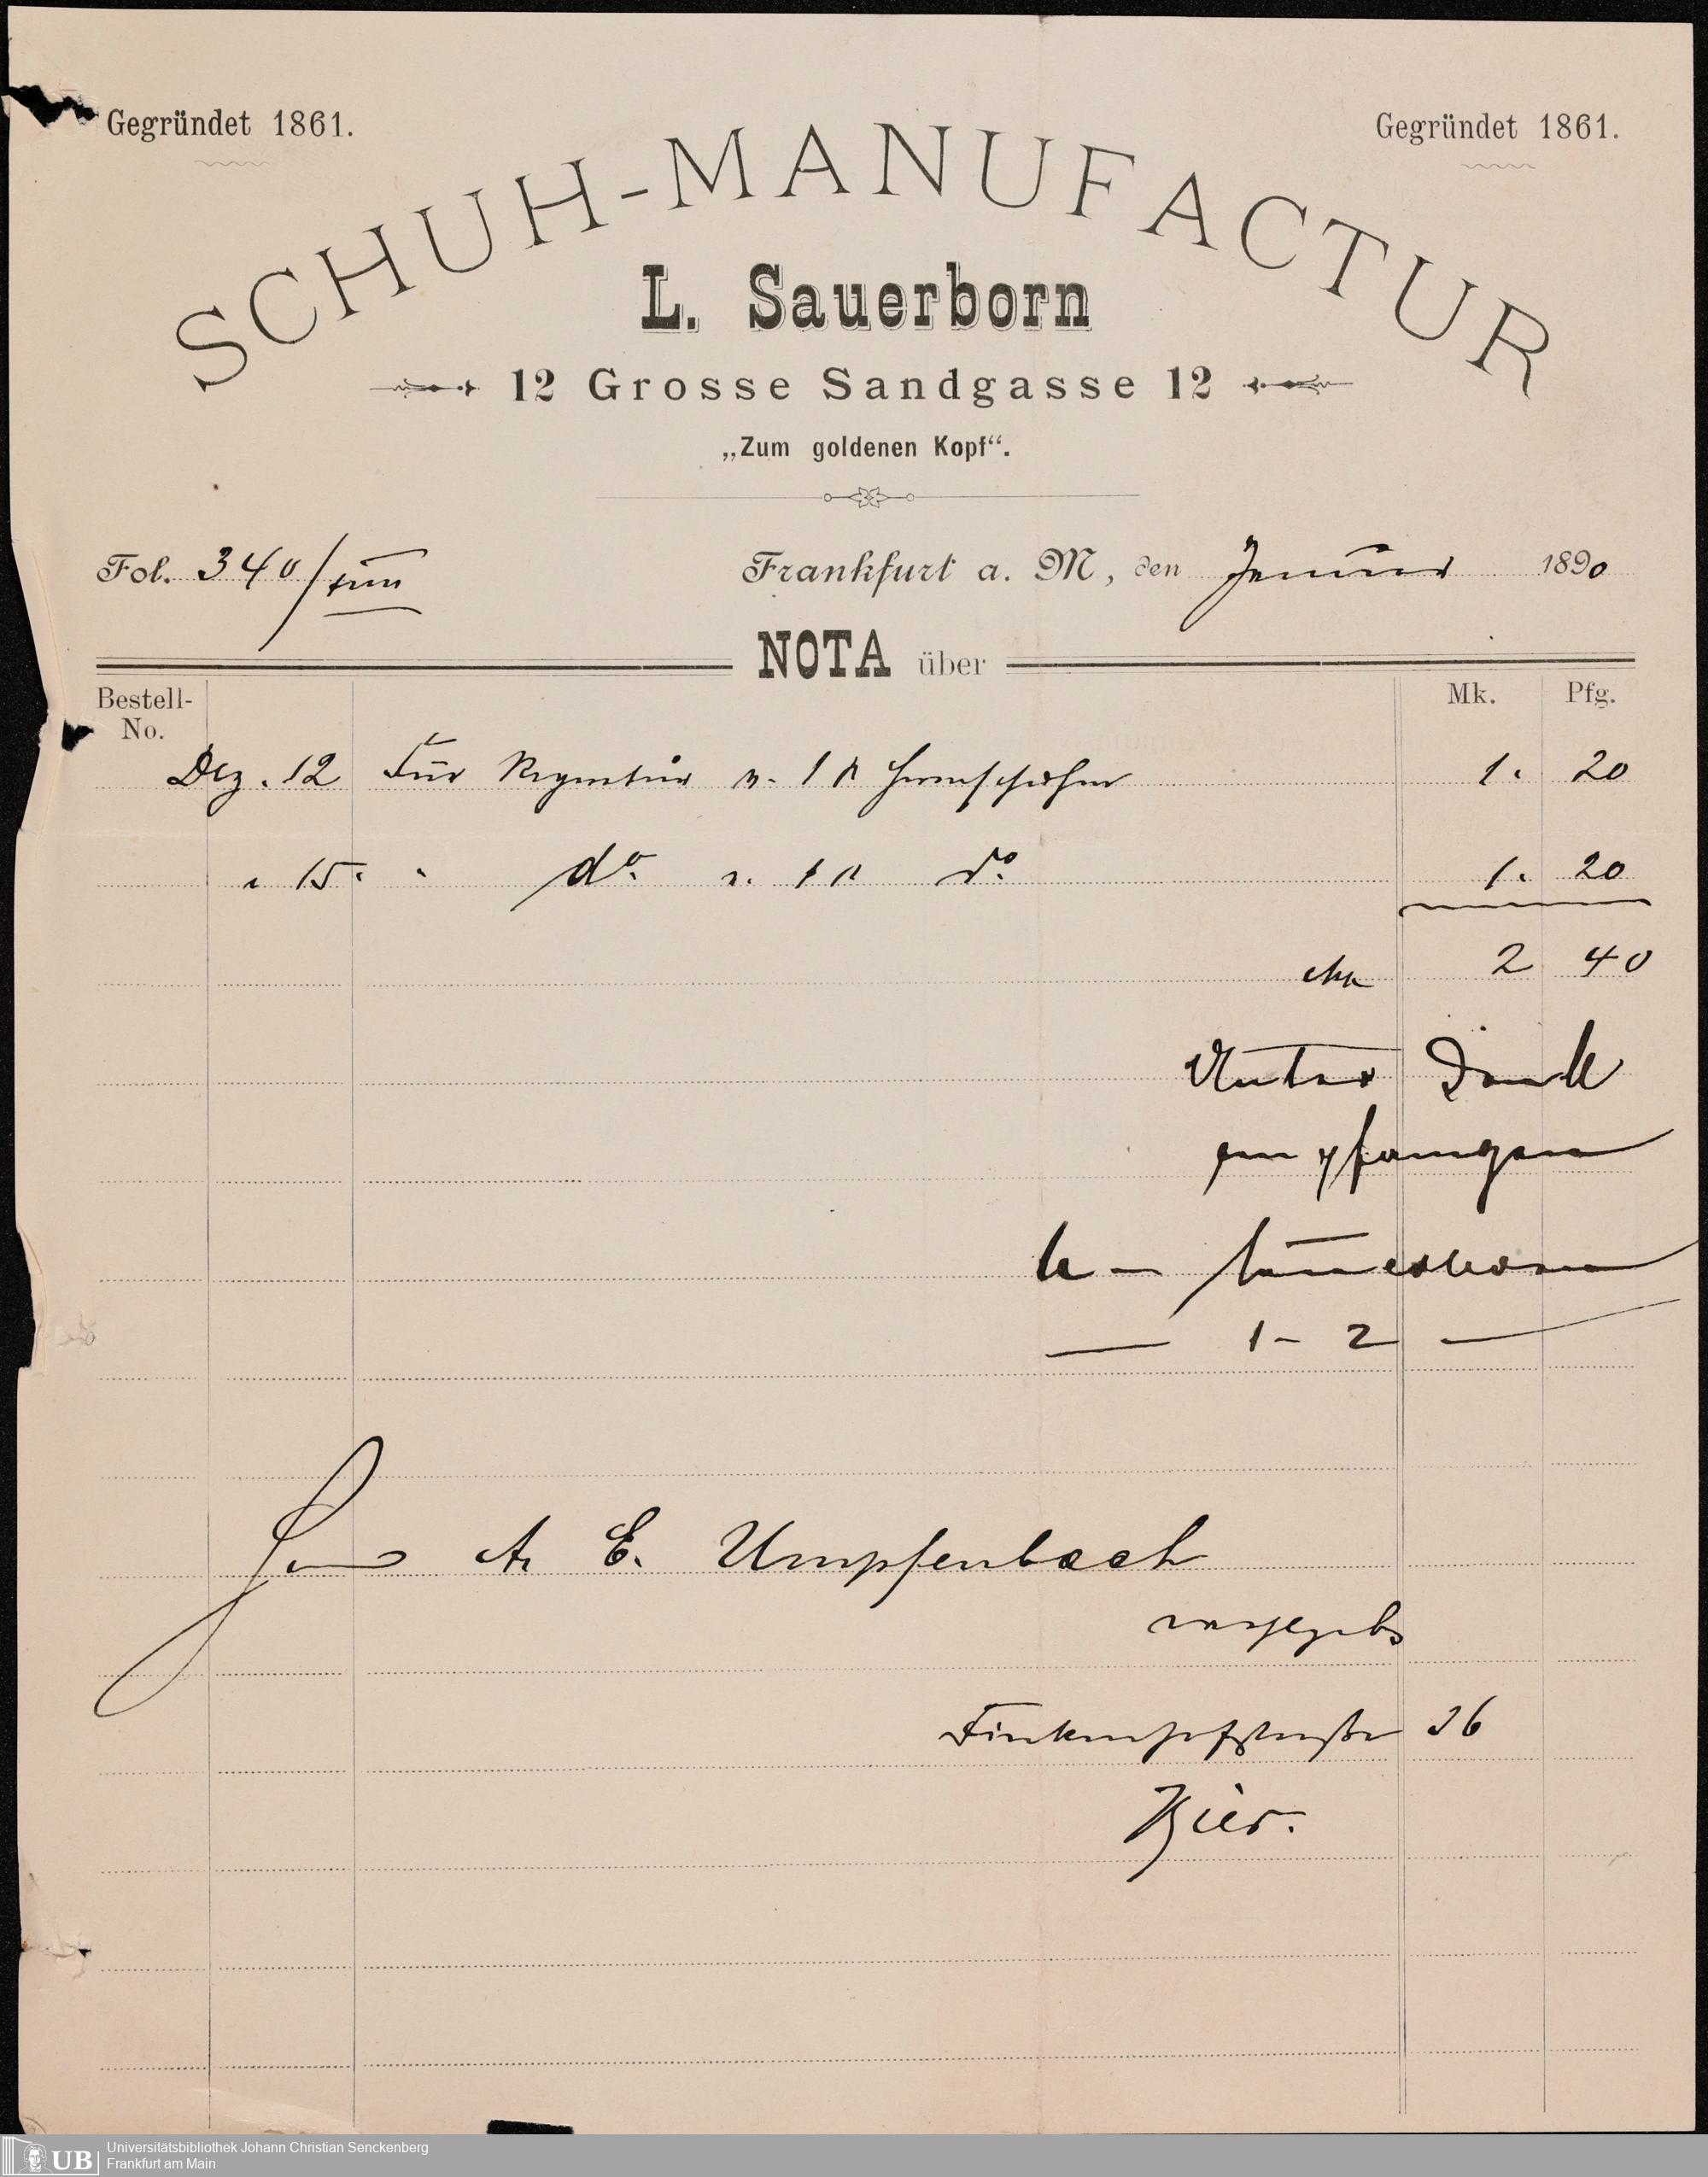 Gegründet 1861.
Gegründet 1861.
SCHUH-MANUFACTUR
L. Sauerborn
12 Grosse Sandgasse 12
„Zum goldenen Kopf“.
Fol. 340/
Frankfurt a. M, den Januar 1890
NOTA über
Bestell-No.
Mk. Pfg.
Dez. 12 Für Reparatur v. 1 P Herrnschuhen 1. 20
" 15. " do. v. 1 P do. 1. 20
Mk 2 40
Unter Dank
empfangen
L Sauerborn
1 - 2
Herrn A. E. Umpfenbach
26
Hier.
UB
Universitätsbibliothek Johann Christian Senckenberg
Frankfurt am Main